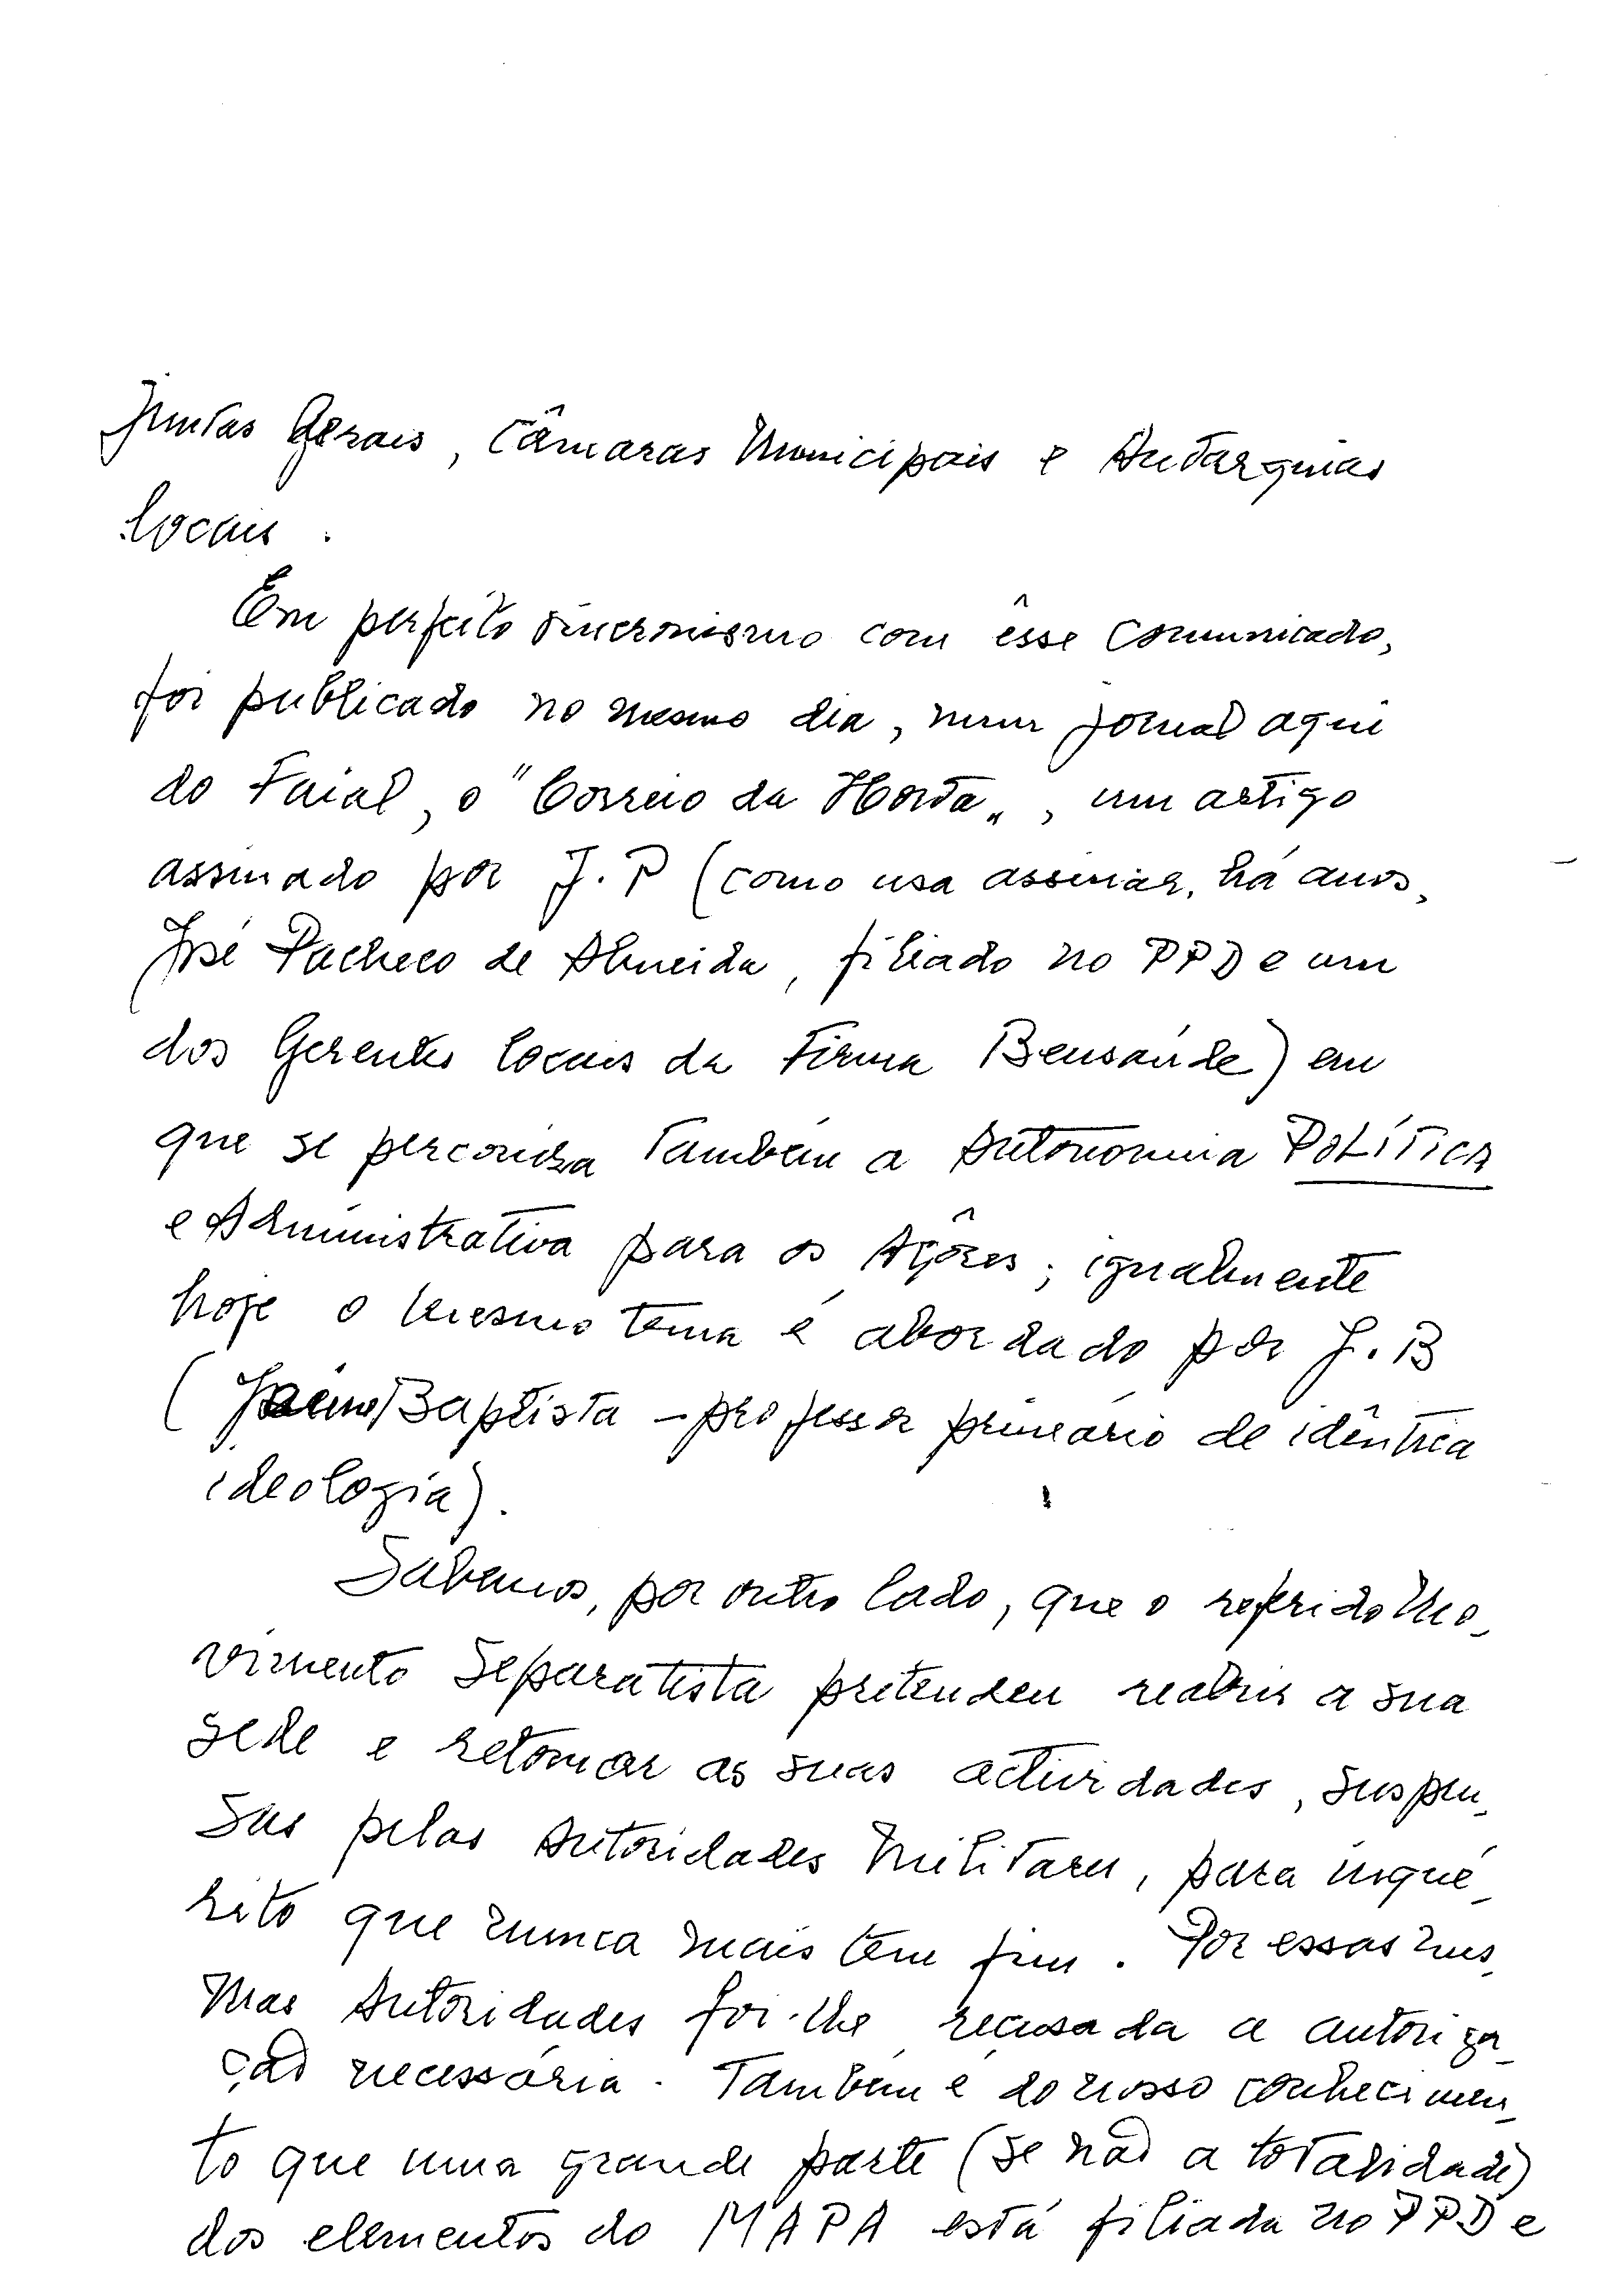 Juntas Gerais, Câmaras Municipais e Autarquias
locais.
Em perfeito sincronismo com êsse comunicado,
foi publicado no mesmo dia, num jornal aqui
do Faial, o "Correio da Horta„, um artigo
assinado por J. P (como usa assinar, há anos,
José Pacheco de Almeida, filiado no PPD e um
dos Gerentes locais da Firma Bensaúde) em
que se perconiza também a Autonomia POLÍTICA
e Administrativa para os Açôres; igualmente
hoje o mesmo tema é abordado por J. B
( Baptista - professor primário de idêntica
ideologia).
Sabemos, por outro lado, que o referido Mo-
vimento Separatista pretendeu reabrir a sua
sede e retomar as suas actividades, suspen-
sas pelas Autoridades Militares, para inqué-
rito que nunca mais tem fim. Por essas mes-
mas Autoridades foi-lhe recusada a autoriza-
ção necessária. Também é do nosso conhecimen-
to que uma grande parte (se não a totalidade)
dos elementos do MAPA está filiada no PPD e